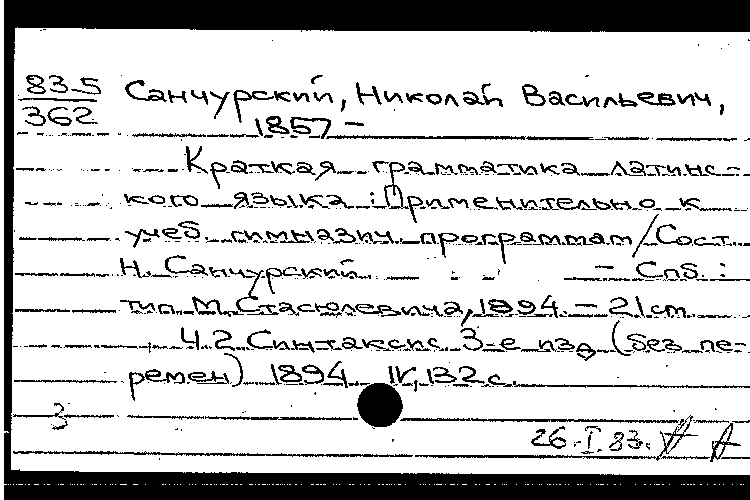 83-5
362
Санчурский, Николай Васильевич,
1857-
Краткая грамматика латинс-
кого языка : Применительно к
учеб. гимназич. программам / Сост.
Н. Санчурский - Спб. :
тип. М. Стасюлевича, 1894. - 21 cm.
Ч. 2 Синтаксис. 3-е изд. (без пе-
ремен) 1894. IV, 132 с.
3
26.I.83.